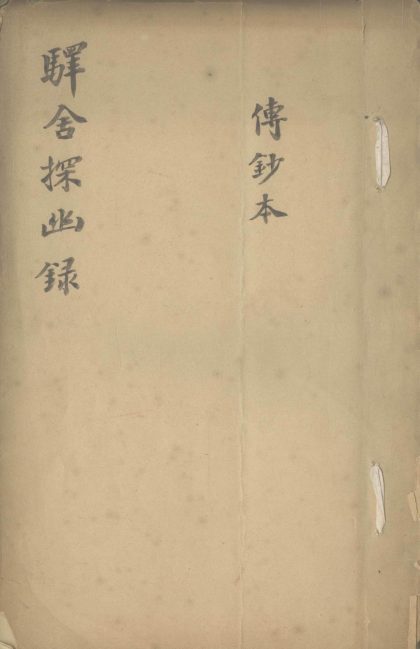 傳鈔本
驛舍探幽録